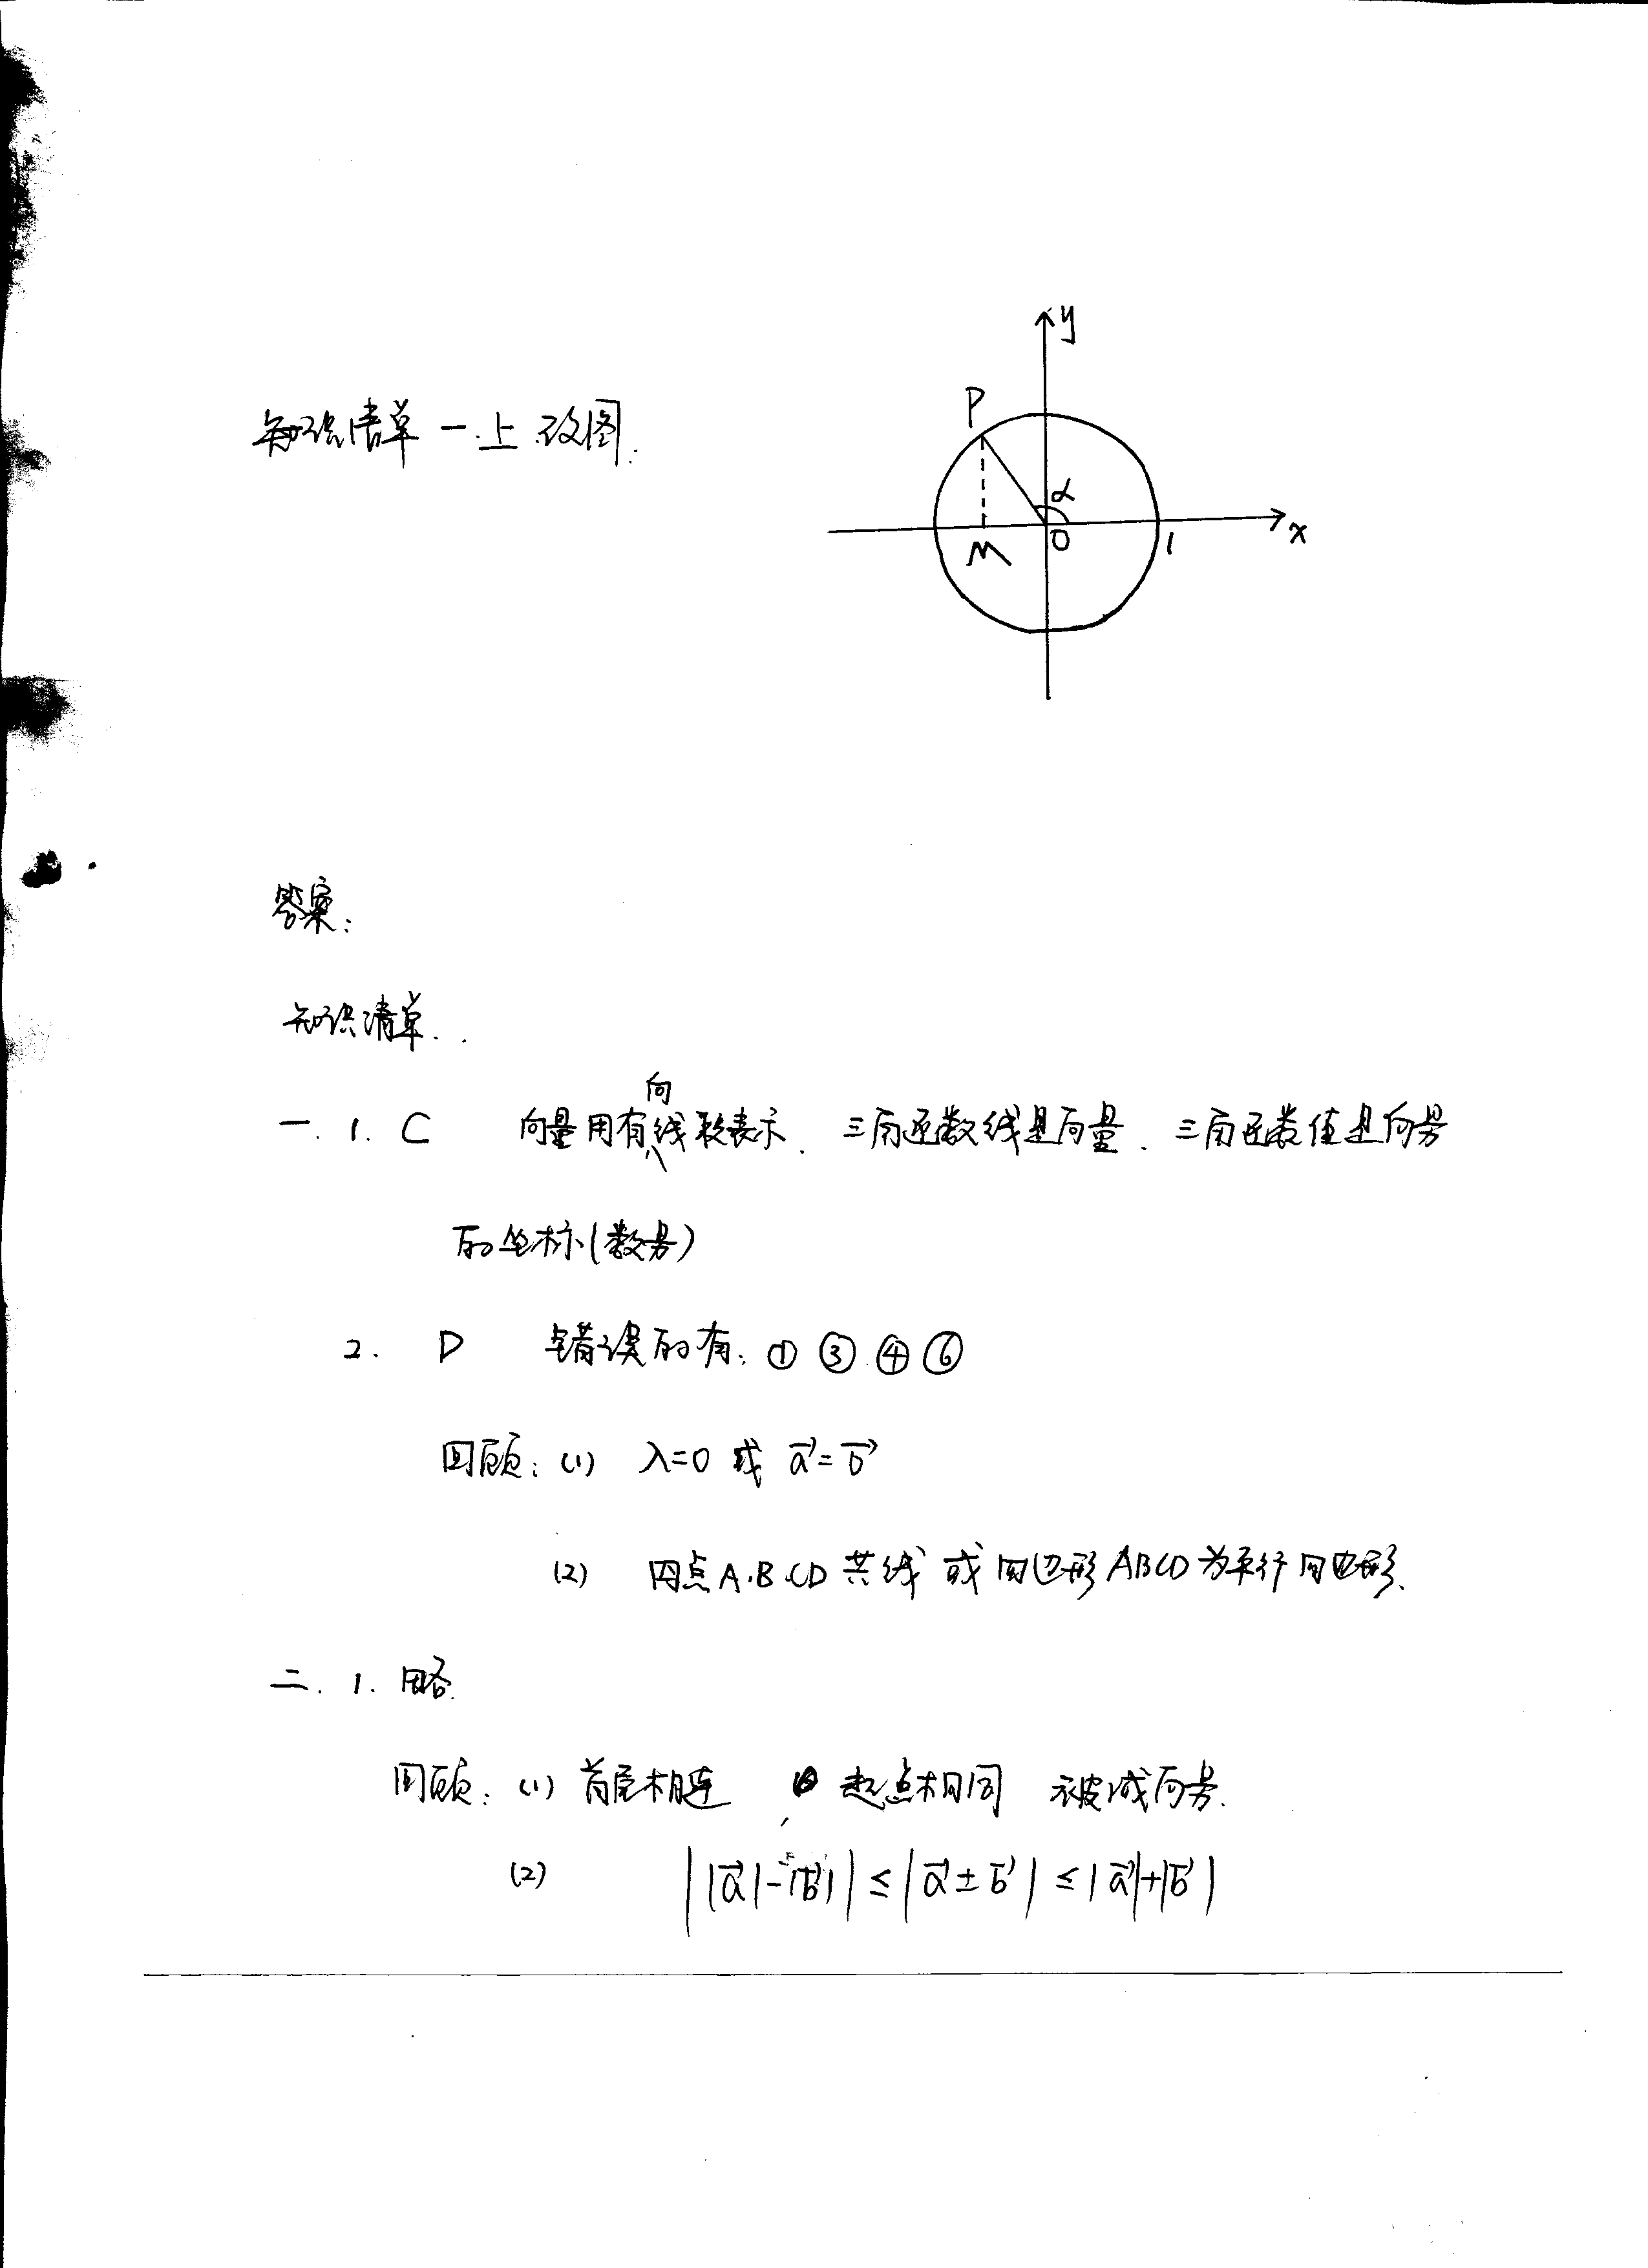 y
知识清单一.上 改图.
P
α
M
O
1
x
答案:
知识清单.
一. 1. C 向量用有向线段表示. 三角函数线是向量. 三角函数值是向量
的坐标(数量)
2. D 错误的有: ① ③ ④ ⑥
回顾: (1) λ=0 或 a⃗=b⃗
(2) 四点A.B.C.D 共线 或 四边形ABCD为平行四边形.
二. 1. 略.
回顾: (1) 首尾相连 起点相同 被减向量.
(2) ||a⃗|-|b⃗|| ≤ |a⃗±b⃗| ≤ |a⃗|+|b⃗|